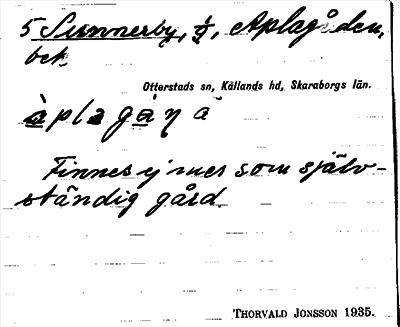 5 Sunnerby, 1/2, Aplagården,
bet.
Otterstads sn, Källands hd, Skaraborgs län.
àplagàŋa
Finnes ej mer som själv-
ständig gård
THORVALD JONSSON 1935.